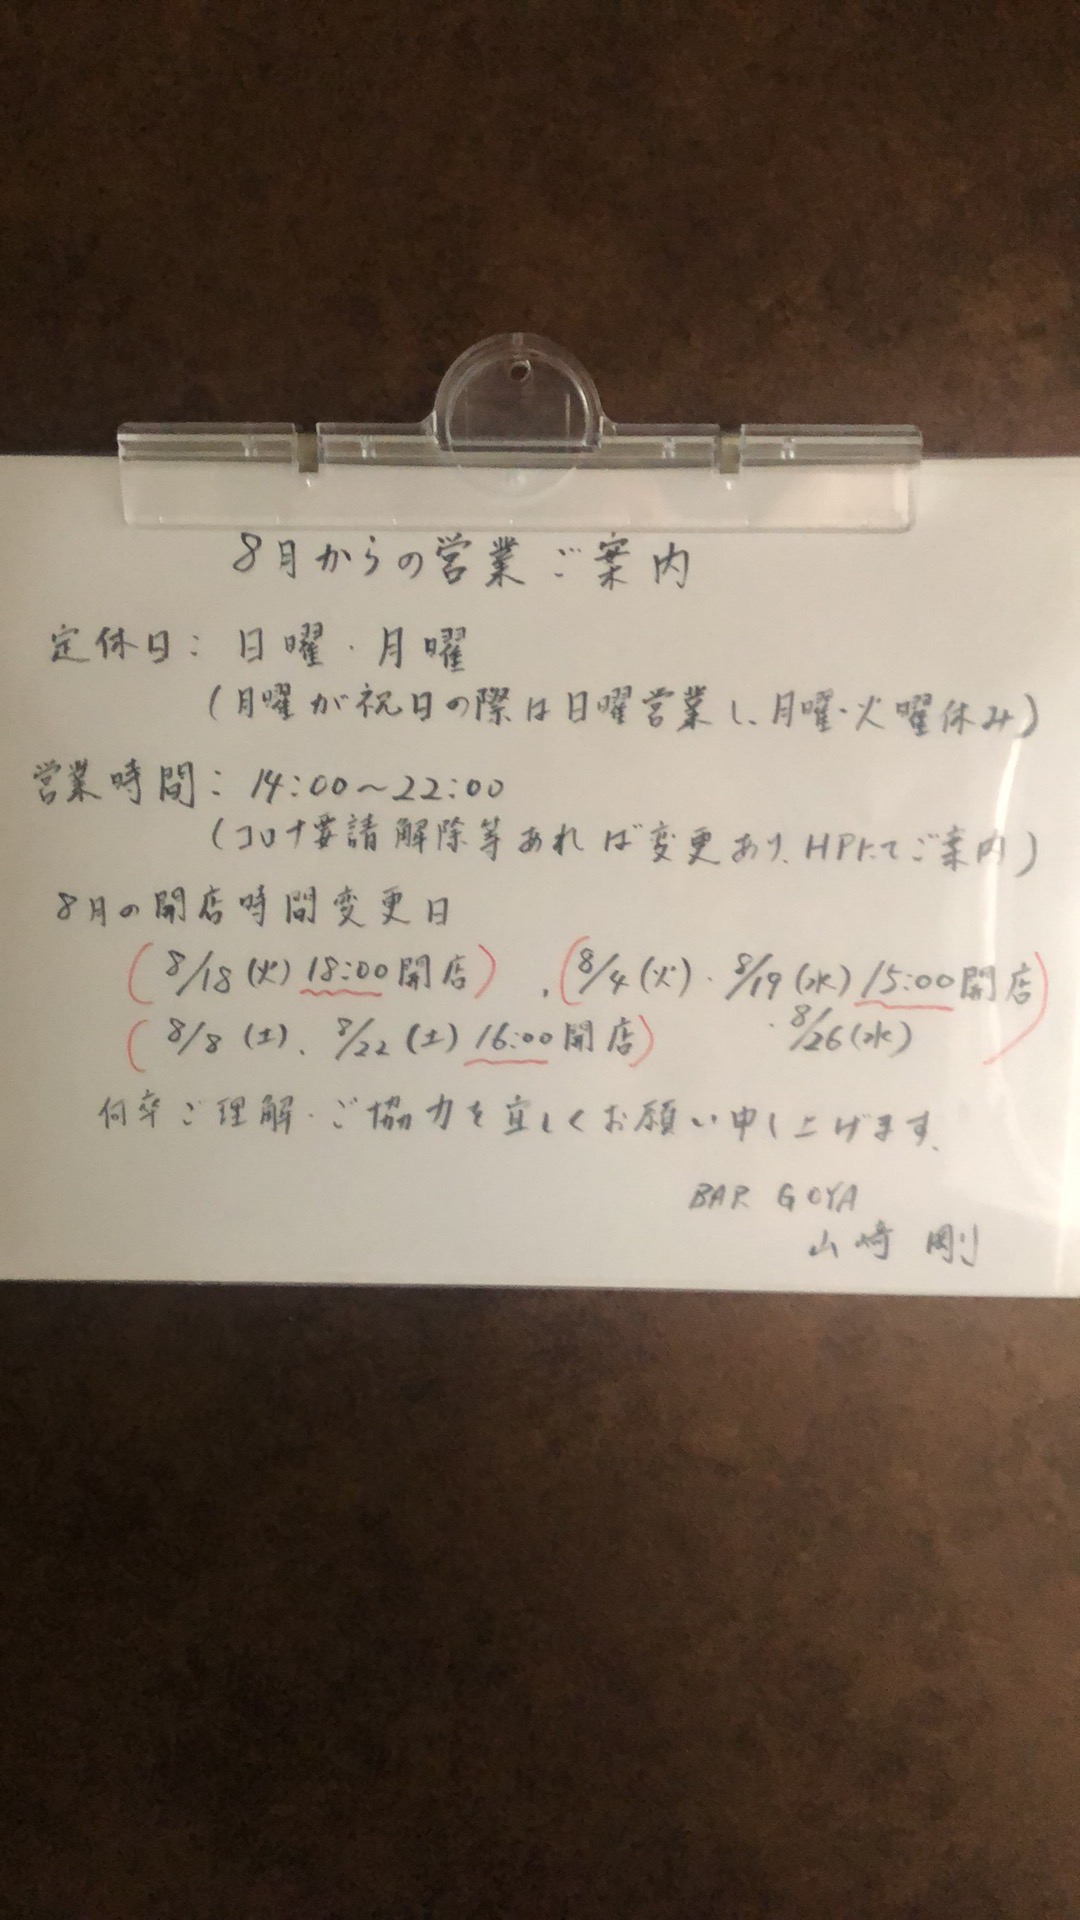 8月からの営業ご案内
定休日: 日曜・月曜
(月曜が祝日の際は日曜営業し、月曜・火曜休み)
営業時間: 14:00〜22:00
(コロナ要請解除等あれば変更あり、HPにてご案内)
8月の開店時間変更日
(8/18(火) 18:00開店)、(8/4(火)・8/19(水) 15:00開店
(8/8(土)、8/22(土) 16:00開店) ・8/26(水))
何卒ご理解・ご協力を宜しくお願い申し上げます。
BAR GOYA
山崎 剛